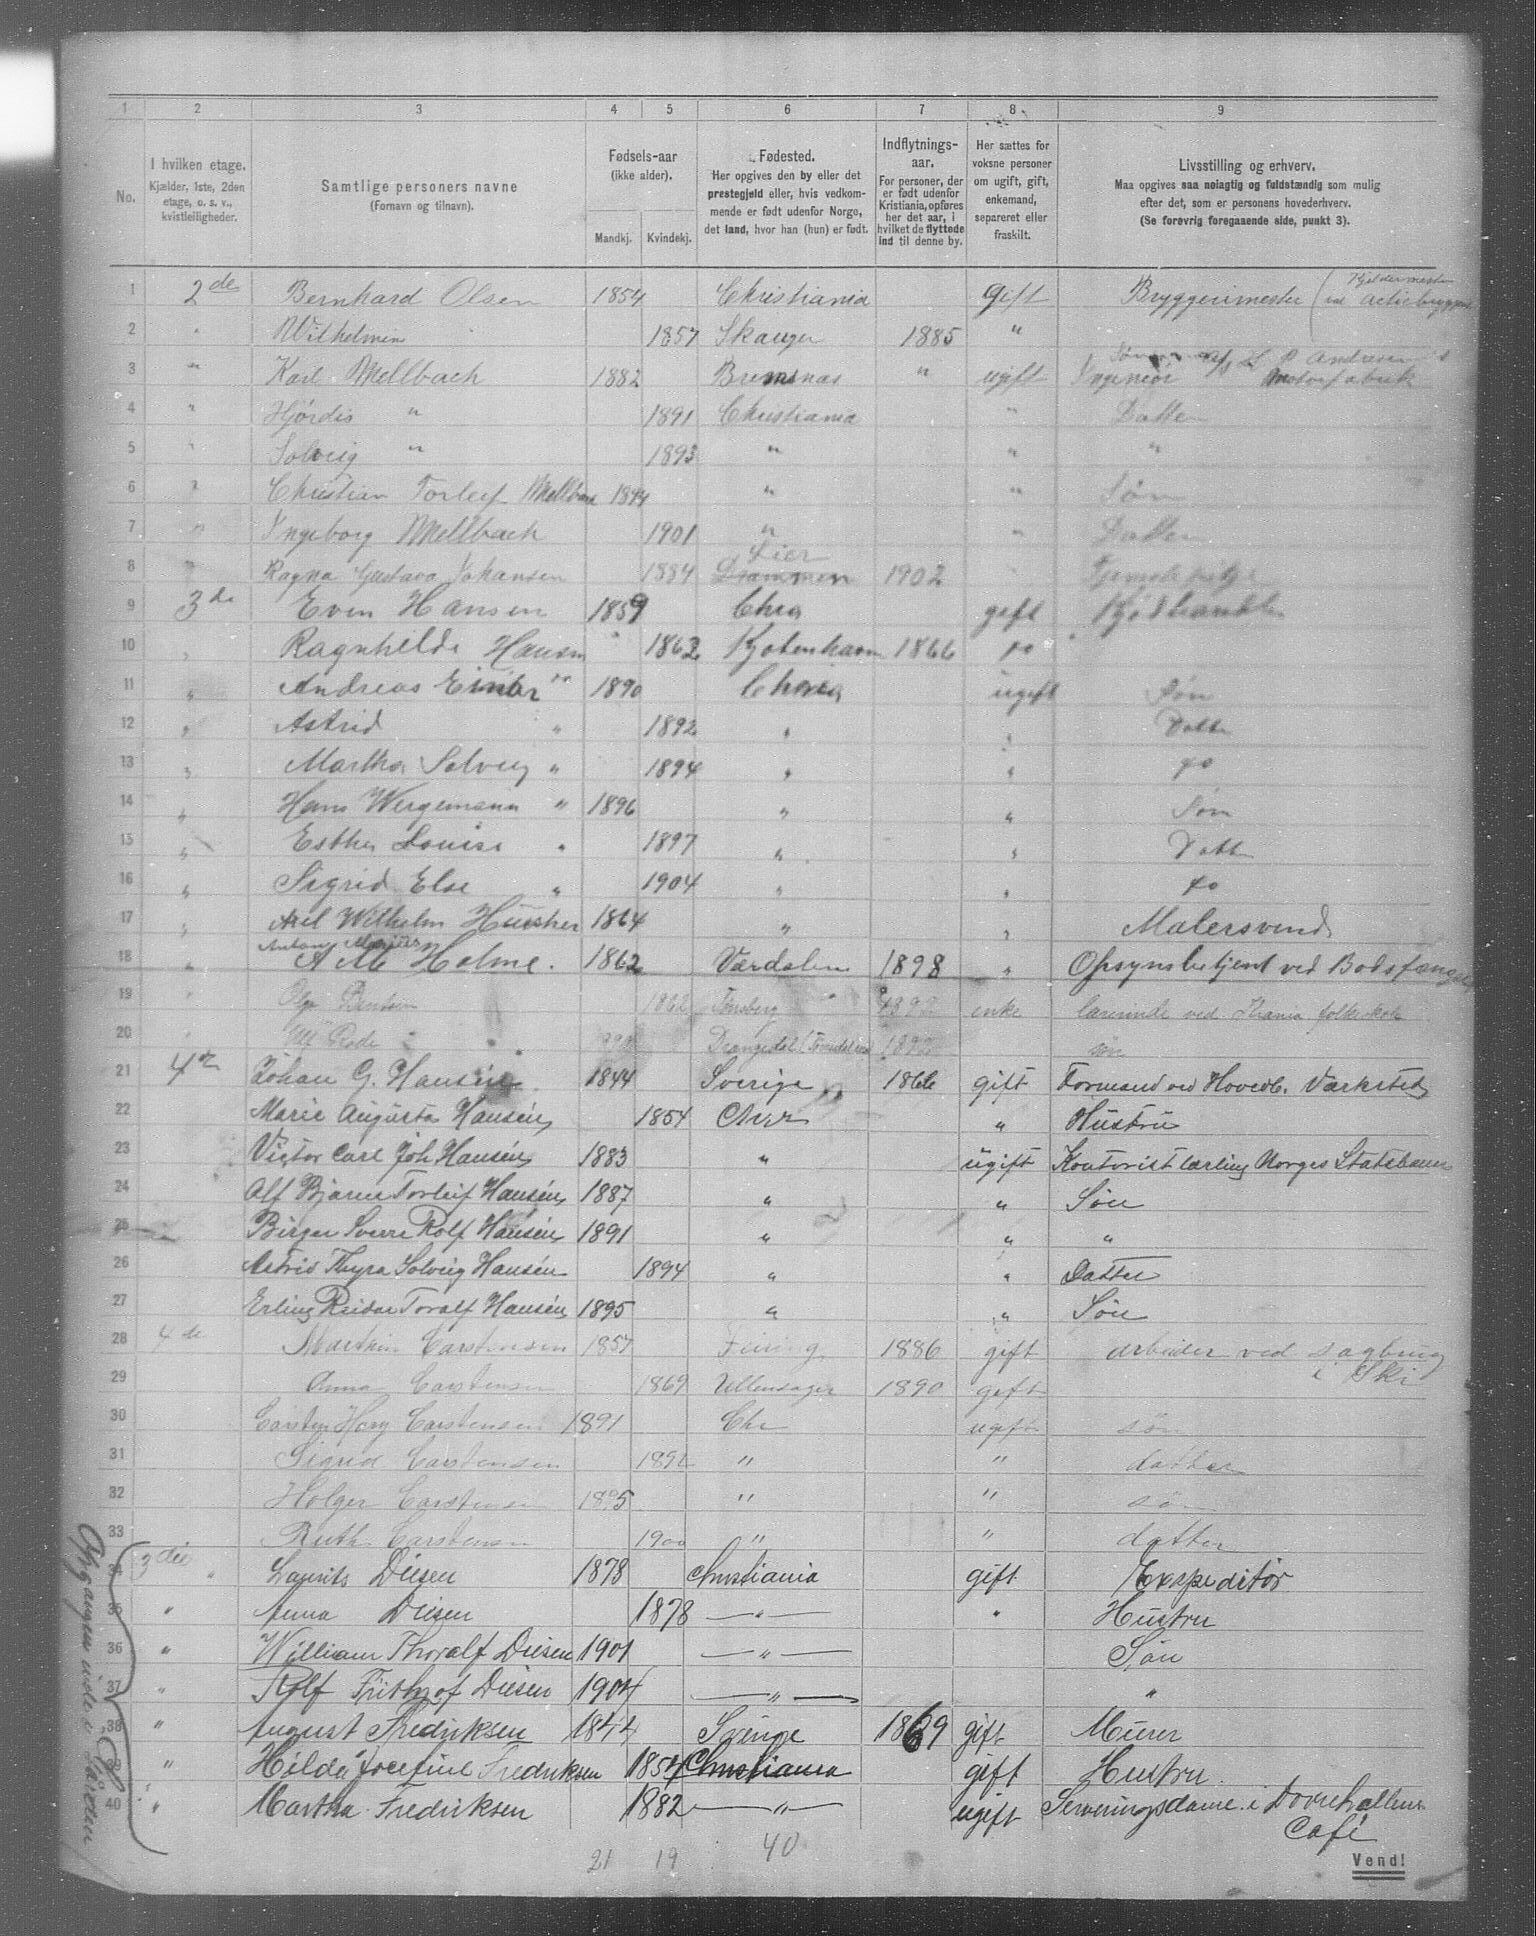 1 2 3 4 5 6 7 8 9
No.
I hvilken etage.
Kjælder, 1ste, 2den
etage, o. s. v.,
kvistleiligheder.
Samtlige personers navne
(Fornavn og tilnavn).
Fødsels-aar
(ikke alder).
Mandkj. Kvindekj.
Fødested.
Her opgives den by eller det
prestegjeld eller, hvis vedkom-
mende er født udenfor Norge,
det land, hvor han (hun) er født.
Indflytnings-
aar.
For personer, der
er født udenfor
Kristiania, opføres
her det aar, i
hvilket de flyttede
ind til denne by.
Her sættes for
voksne personer
om ugift, gift,
enkemand,
separeret eller
fraskilt.
Livsstilling og erhverv.
Maa opgives saa nøiagtig og fuldstændig som mulig
efter det, som er personens hovederhverv.
(Se forøvrig foregaaende side, punkt 3).
1 2de Bernhard Olsen 1854 Christiania gift Bryggerimester
2 " Wilhelmin 1857 Skauger 1885 "
3 " Karl Mellbach 1882 Bremsnas " ugift Ingeniør Motorfabrik
4 " Hjördis " 1891 Christiania " Datter
5 " Solveig " 1893 " " "
6 " Christian Torleif Mellbach 1894 " " Søn
7 " Yngeborg Mellbach 1901 " " Datter
8 " Ragna Gustava Johansen 1884 Lier Drammen 1902 " Tjenestepige
9 3de Even Hansen 1859 Chria gift Kjødhandler
10 " Ragnhilde Hansen 1862 Kjøbenhavn 1866 do
11 " Andreas Einar " 1890 Chria ugift Søn
12 " Astrid " 1892 " " Datt
13 " Martha Solveig " 1894 " " do
14 " Hans Wergemann " 1896 " " Søn
15 " Esther Louise " 1897 " " Datt
16 " Sigrid Else " 1904 " " do
17 " Axel Wilhelm 1864 " " Malersvend
18 " A M Holme. 1862 Værdalen 1898 " Opsynsbetjent ved Bodsfængslet
19 " Olga Bentsen 1862 Tønsberg enke lærerinde ved Kr.ania folkeskole
20 " Rode Drangedal søn
21 4de Johan G. Hansén 1844 Sverige 1866 gift Formand ved Hovedb. Værksted
22 Marie Augusta Hansén 1854 Chria " Hustru
23 Victor Carl Joh Hansén 1883 " ugift Kontoristlærling Norges Statsbaner
24 Alf Bjarne Torleif Hansén 1887 " " Søn
25 Birger Sverre Rolf Hansén 1891 " " "
26 Astrid Thyra Solveig Hansén 1894 " " Datter
27 Erling Reidar Toralf Hansén 1895 " " Søn
28 4de Marthin Carstensen 1857 Feiring 1886 gift arbeider ved sagbrug
i Ski
29 Anna Carstensen 1869 Ullensager 1890 gift
30 Carsten Carstensen 1891 Chr ugift søn
31 Sigrid Carstensen 1892 " " datter
32 Holger Carstensen 1895 " " søn
33 Ruth Carstensen 1900 " " datter
34 3die Laurits Diesen 1878 Christiania gift Expeditør
35 " Anna Diesen 1878 — " — " Hustru
36 " William Thoralf Diesen 1901 — " — Søn
37 " Rolf Frithjof Diesen 1904 — " — "
38 " August Fredriksen 1844 Sverige 1869 gift Murer
39 " Hilda Josefine Fredriksen 1854 Christiania gift Hustru.
40 " Martha Fredriksen 1882 — " — ugift Serveringsdame i Dovrehallens
Café
21 19 40
Vend!
Opgangen inde i Gaarden